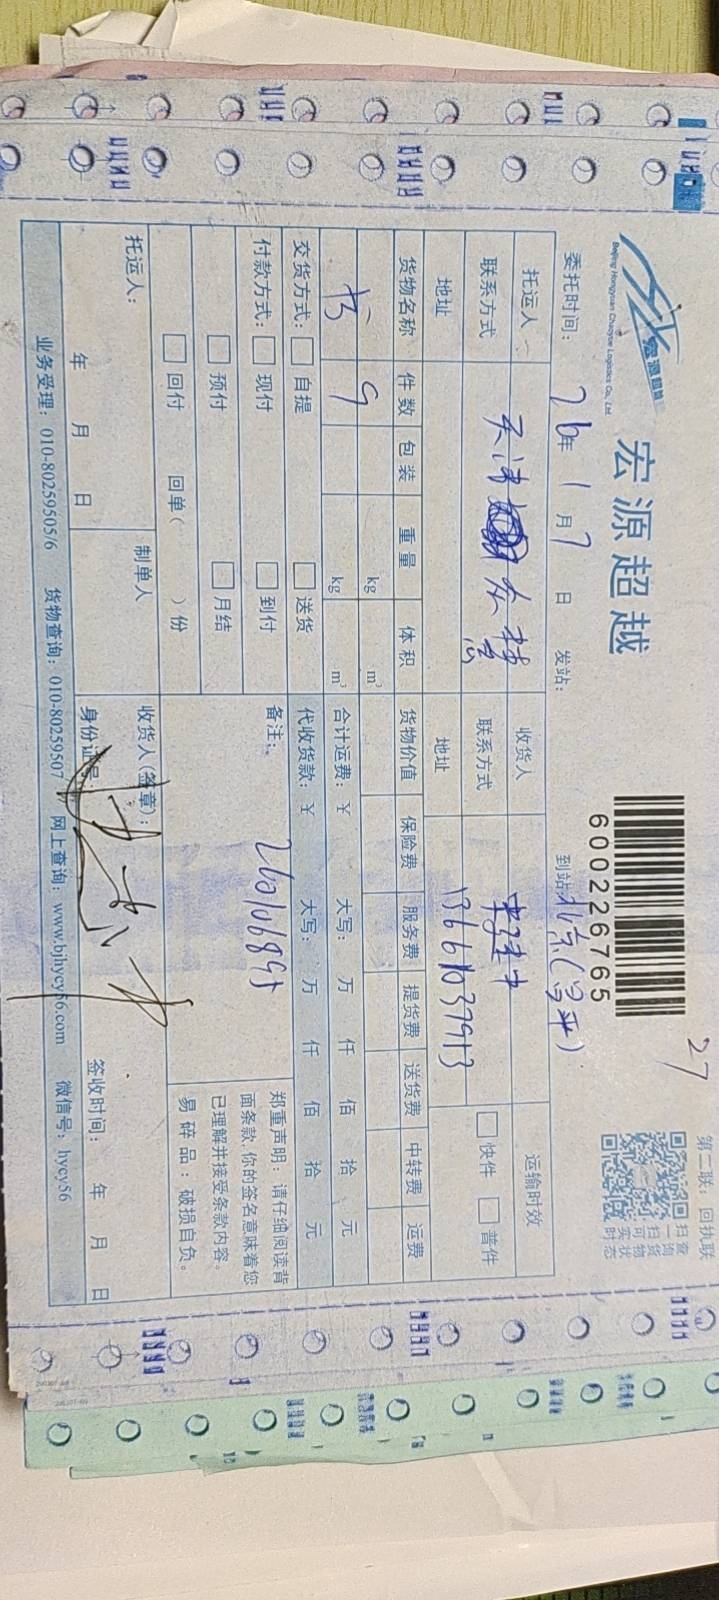 宏源超越
Beijing Hongyuan Chaoyue Logistics Co., Ltd.
宏源超越
600226765
27
第二联：回执联
扫一扫可实时
查询货物状态
委托时间：26年1月7日 发站： 到站：北京(昌平)
托运人 天津 收货人 李建中 运输时效
联系方式 联系方式 13661037913 快件 普件
地址 地址
货物名称 件数 包装 重量 体积 货物价值 保险费 服务费 提货费 送货费 中转费 运费
kg m³
书 9 kg m³ 合计运费：¥ 大写： 万 仟 佰 拾 元
交货方式： 自提 送货 代收货款：¥ 大写： 万 仟 佰 拾 元
付款方式： 现付 到付 备注：
预付 月结 26010689
回付 回单( )份
郑重声明：请仔细阅读背
面条款，你的签名意味着您
已理解并接受条款内容。
易碎品：破损自负。
托运人： 制单人 收货人(签章)：
年 月 日 身份证号： 签收时间： 年 月 日
业务受理：010-80259505/6 货物查询：010-80259507 网上查询：www.bjhycy56.com 微信号：hycy56